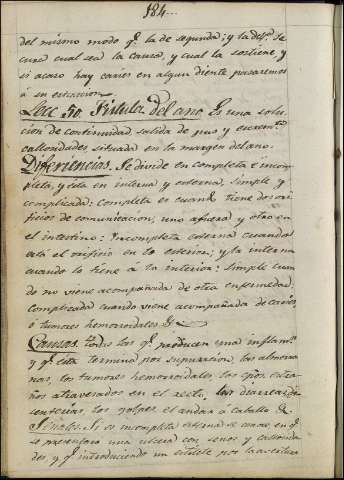 184...
del mismo modo q.e la de segunda; y la del
cura cual sea la causa, y cual la sostiene, y
si acaso hay caries en algun diente pasaremos
á su extraccion
Lecc 50. Fistula del ano. Es una solu
cion de continuidad, salida de pus y excrem.tos
callosidades situada en la margen del ano.
Diferiencias. Se divide en completa é incom
pleta, y esta en interna y esterna, simple y
complicada: Completa es cuando tiene dos ori
ficios de comunicacion, uno afuera y otro en
el intestino: Incompleta esterna cuando
está el orificio en lo esterior; y la interna
cuando lo tiene á la interior: simple cuan
do no viene acompañada de otra enfermedad,
complicada cuando viene acompañada de caries
o tumores hemorroidales &
Causas. todas las q.e producen una inflam.n
y q.e esta termina por supuracion, las almorra
nas, los tumores hemorroidales, los cpos estra
ños atravesados en el recto, las diarreas, di
senterias, los golpes el andar á caballo &
Señales. Si es incompleta esterna se conoce, en q.e
se presentara una ulcera con senos y callosida
des y q.e introduciendo un estilete por la avertura